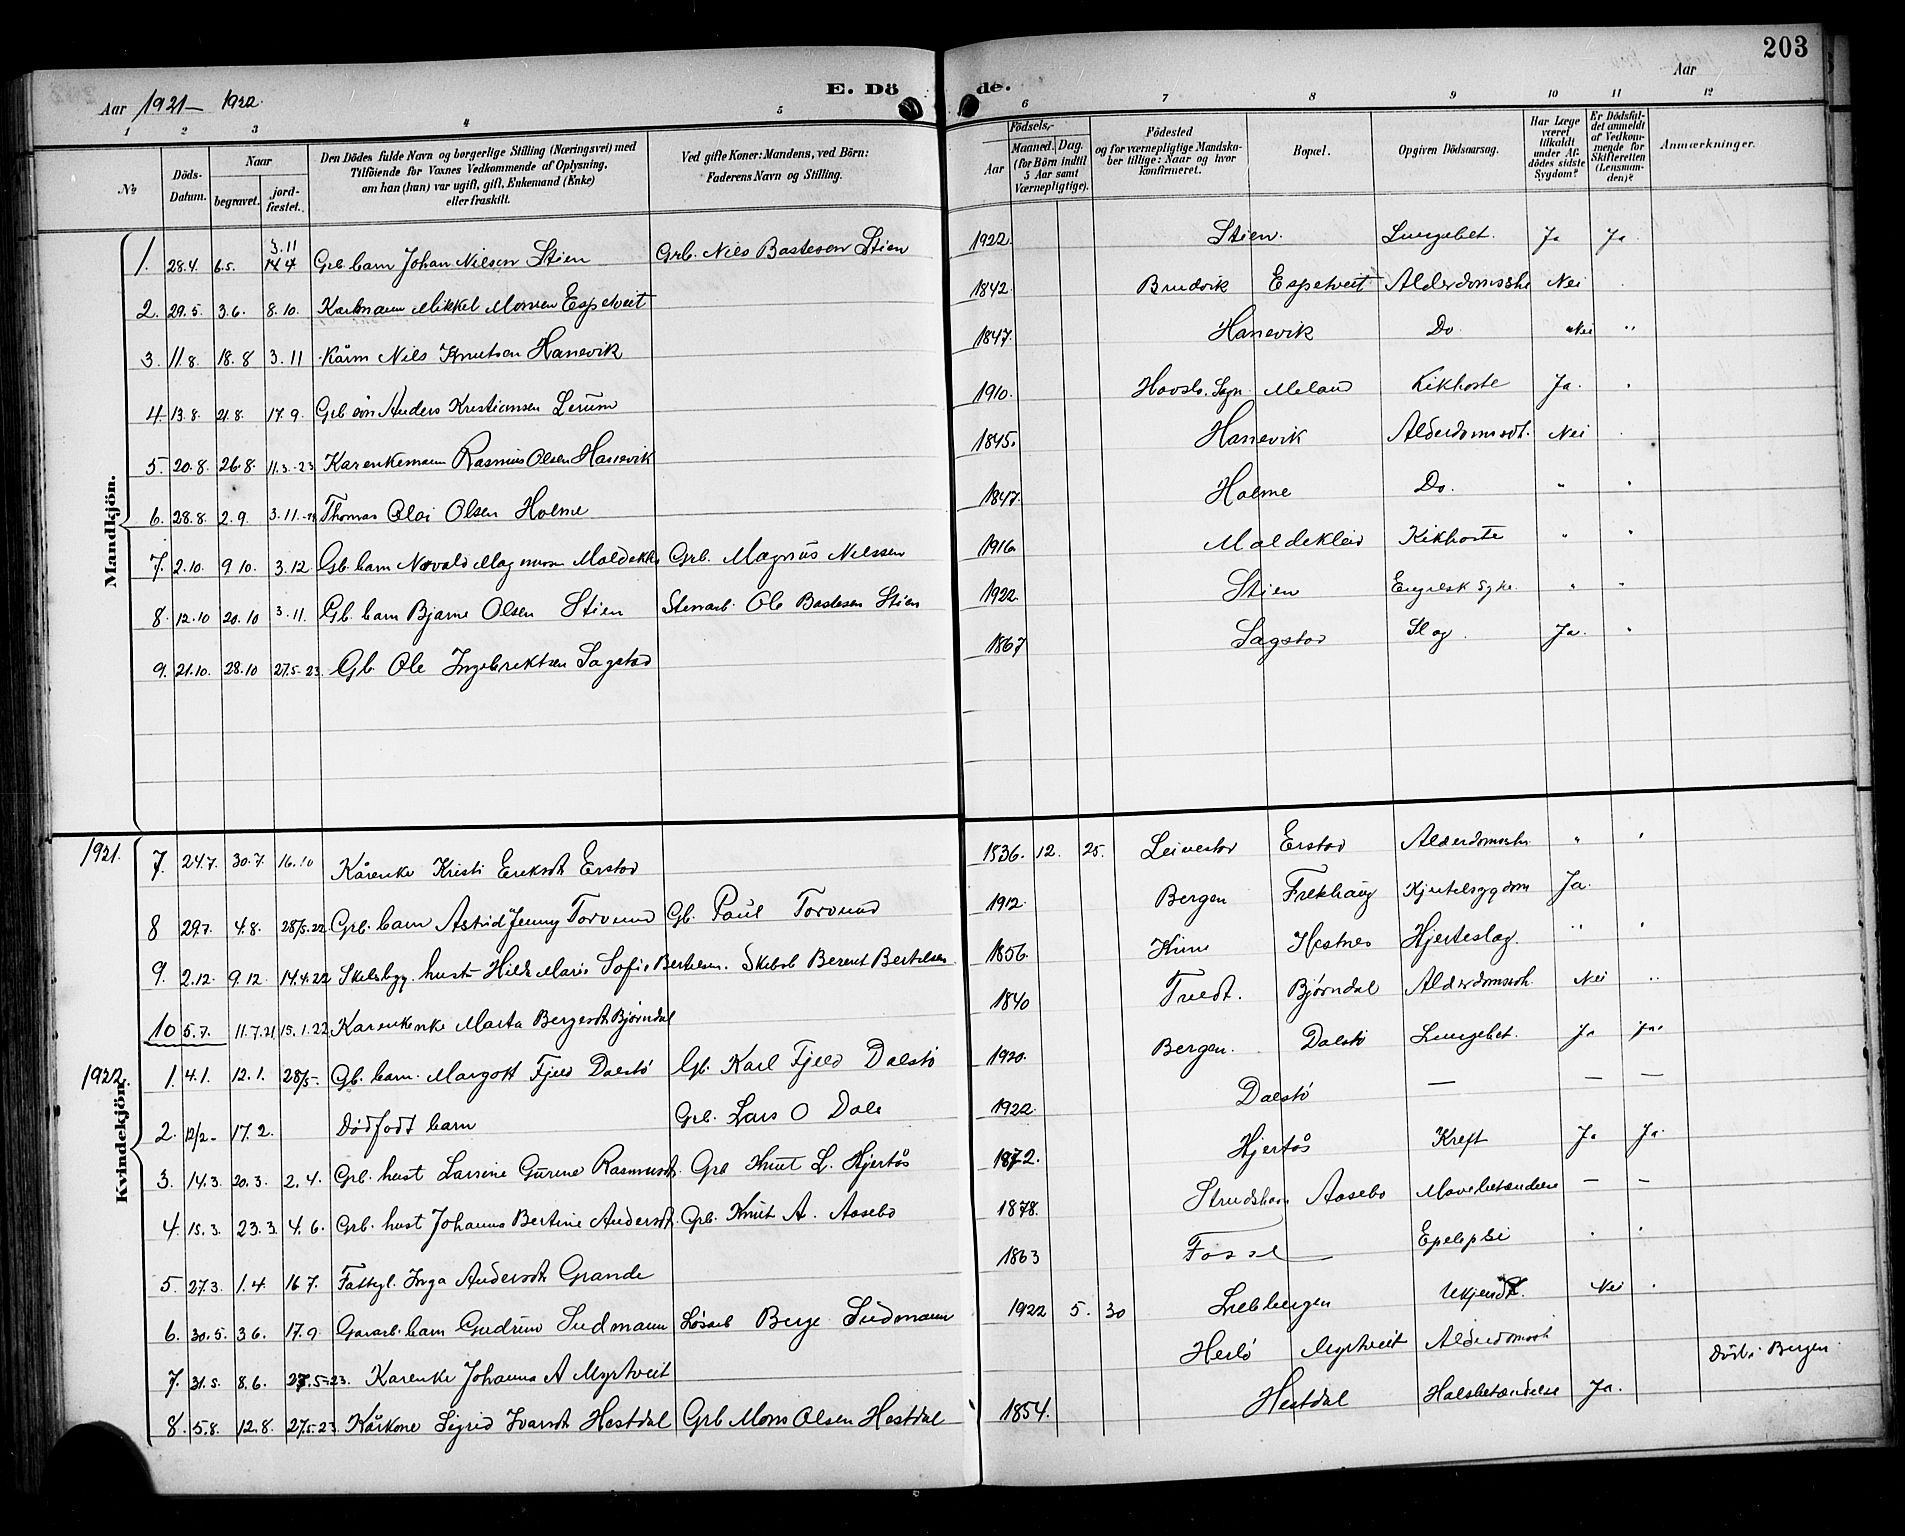 203
Aar 1921 - 1922. E. Dö de. Aar
1 2 3 4 5 6 7 8 9 10 11 12
No
Döds-Datum.
Naar
begravet.
jord-fæstet.
Den Dödes fulde Navn og borgerlige Stilling (Næringsvei) med
Tilföiende for Voxnes Vedkommende af Oplysning,
om han (hun) var ugift, gift, Enkemand (Enke)
eller fraskilt.
Ved gifte Koner: Mandens, ved Börn:
Faderens Navn og Stilling.
Födsels-
Aar
Maaned. Dag.
(for Börn indtil
5 Aar samt
Værnepligtige).
Födested
og for værnepligtige Mandska-
ber tillige: Naar og hvor
konfirmeret.
Bopæl.
Opgiven Dödsaarsag.
Har Læge
været
tilkaldt
under Af-
dödes sidste
Sygdom?
Er Dödsfal-
det anmeldt
af Vedkom-
mende for
Skifteretten
(Lensman-
den)?
Anmærkninger.
Mandkjön.
1. 28.4. 6.5. 3.11 Grb. barn Johan Nilsen Stien Grb. Nils Bastesen Stien 1922 Stien. Lungebet. Ja Ja.
2. 29.5. 3.6. 8.10. Mikkel Monsen Espetveit 1842. Bruvik Espetveit Nei
3. 11.8. 18.8 3.11 Nils Knutsen Hanevik 1847. Hanevik Do. Nei "
4. 13.8. 21.8. 17.9. Grb. sön Anders Kristiansen Lerum 1910. Hovsl. Sogn Meland Kikhoste Ja.
5. 20.8. 26.8. 11.3.-23 Karenkemann Rasmus Olsen Hanevik 1845. Hanevik Alderdomssvt. Nei
6. 28.8. 2.9. 3.11. Thomas Olai Olsen Holme 1847. Holme Do. " "
7. 2.10. 9.10. 3.12 Gb. barn Grb. Magnus Nilssen 1916. Maldekleiv Kikhoste " "
8. 12.10 20.10 3.11. Gb. barn Bjarne Olsen Stien Stenarb. Ole Bastesen Stien 1922 Stien Engelsk Syke. " "
9. 21.10. 28.10 27.5-23. Gb Ole Ingebrektsen Sagstad 1867 Sagstad Slag. Ja. "
1921.
7. 24.7. 30.7. 16.10 Kårenke Kristi Eriksdt Erstad 1836. 12. 25. Leivestad Erstad "
8 29.7. 4.8. 28/5.22 Grb. barn Astrid Jenny Torvund Gb. Paul Torvund 1912. Bergen Frekhaug Ja.
9. 2.12. 9.12. 14.4.22 Skibsbyg. hust Hilda Marie Sofie Bertelsen. Skibsb Berent Bertelsen 1856. Hestnes Hjerteslag. "
10 5.7. 11.7.21 15.1.22 Marta Bergesdt Bjørndal 1840 Tvedt. Bjørndal Nei "
1922.
Kvindekjön.
1. 4.1. 12.1. 28/5-. Gb. barn. Margott Fjeld Dalstö Gb. Karl Fjeld Dalstö 1920. Bergen. Dalstö Lungebet. Ja Ja.
2. 12/2- 17.2. Dødfødt barn Grb. Lars O Dale 1922. Dalstö — — —
3. 14.3. 20.3. 2.4. Grb. hust Larsine Gurine Rasmusdt. Grb Knut L. Hjertås 1872. Hjertås Kreft Ja Ja.
4. 15.3. 23.3. 4.6. Grb. hust Johanna Bertine Andersdt Grb. Knut A. Aasebø 1878. Strudshavn Aasebø Mavebetændelse — —
5. 27.3. 1.4. 16.7. Fattigl. Inga Andersdt Grande 1863 Fosse — Epelepsi " "
6. 30.5. 3.6. 17.9. barn Gudrun Sudmann Løsarb Berge Sudmann 1922 5. 30 Ukjendt. Nei "
7. 31.5. 8.6. 27.5-23. Karenke Johanna A Myrtveit Herlö Myrtveit Alderdomssvt Död i Bergen.
8. 5.8. 12.8. 27.5.23. Kårkone Sigrid Ivarsdt Hestdal Grb Mons Olsen Hestdal 1854. Hestdal Halsbetændelse Ja.